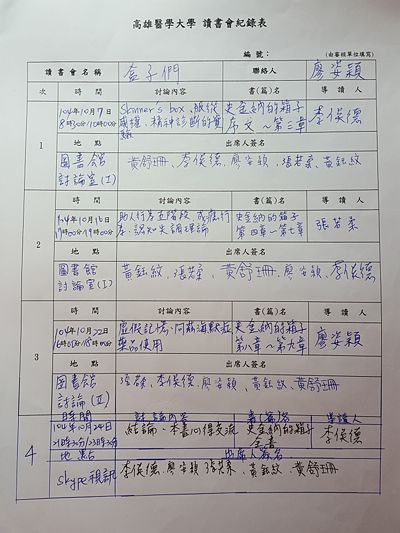 高雄醫學大學 讀書會紀錄表
編 號： (由審核單位填寫)
讀書會名稱 盒子們 聯絡人 廖姿穎
次 時 間 討論內容 書(篇)名 導 讀 人
1
104年10月7日 Skinner's box、服從 史金納的箱子 李俟德
8時00分/10時00分 威權、精神診斷的實驗 序文～第三章
地 點 出席人簽名
圖書館 黃舒珊、李俟德、廖姿穎、張若柔、黃鈺紋
討論室(I)
2
時 間 討論內容 書(篇)名 導 讀 人
104年10月16日 助人行為五階段、成癮行 史金納的箱子 張若柔
17時00分/19時00分 為、認知失調理論 第四章～第七章
地 點 出席人簽名
圖書館 黃鈺紋、張若柔、黃舒珊、廖姿穎、李俟德
討論室(I)
3
時 間 討論內容 書(篇)名 導 讀 人
104年10月22日 虛假記憶、阿茲海默症 史金納的箱子 廖姿穎
藥品使用 第八章～第九章
地 點 出席人簽名
圖書館 張若柔、李俟德、廖姿穎、黃鈺紋、黃舒珊
討論室(II)
4
時間 討論內容 書(篇)名 導讀人
104年10月24日 結論、本書心得交流 史金納的箱子 李俟德
21時30分/23時30分 全書
地點 出席人簽名
skype視訊 李俟德、廖姿穎、張若柔、黃鈺紋、黃舒珊